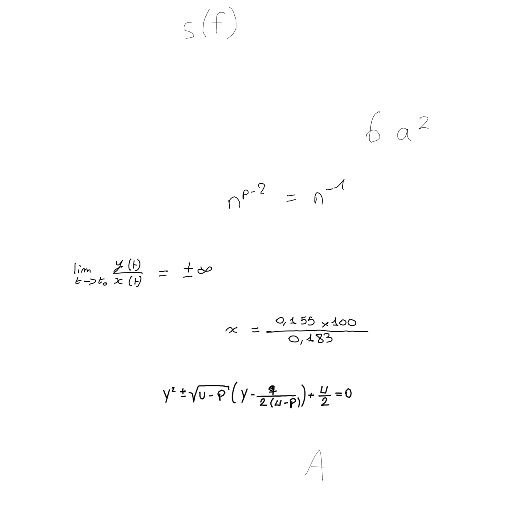 s(f)
6 a²
n^{p-2} = n^{-1}
lim_{t→t₀} y(t)/x(t) = ±∞
x = (0,155 × 100)/(0,183)
y² ± √(u-p) (y - q/(2(u-p))) + u/2 = 0
A